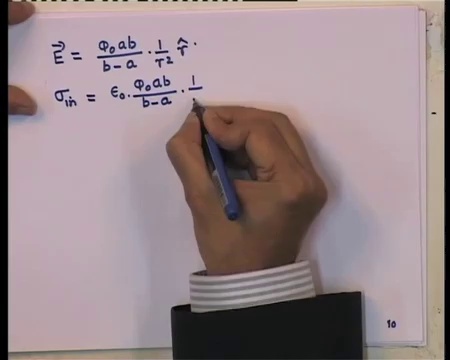 E⃗ = φ₀ab/(b−a) · 1/r² r̂.
σ_in = ε₀. φ₀ab/(b−a) · 1/
10